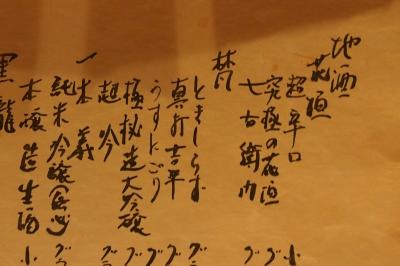 地酒
花垣
超辛口
究極の花垣
七右衛門
梵
ときしらず
真打吉平
うすにごり
極秘造大吟醸
超吟
一本義
純米吟醸
本醸 生酒
黒龍
小
グ
グ
グ
グ
グ
グラ
グラ
小